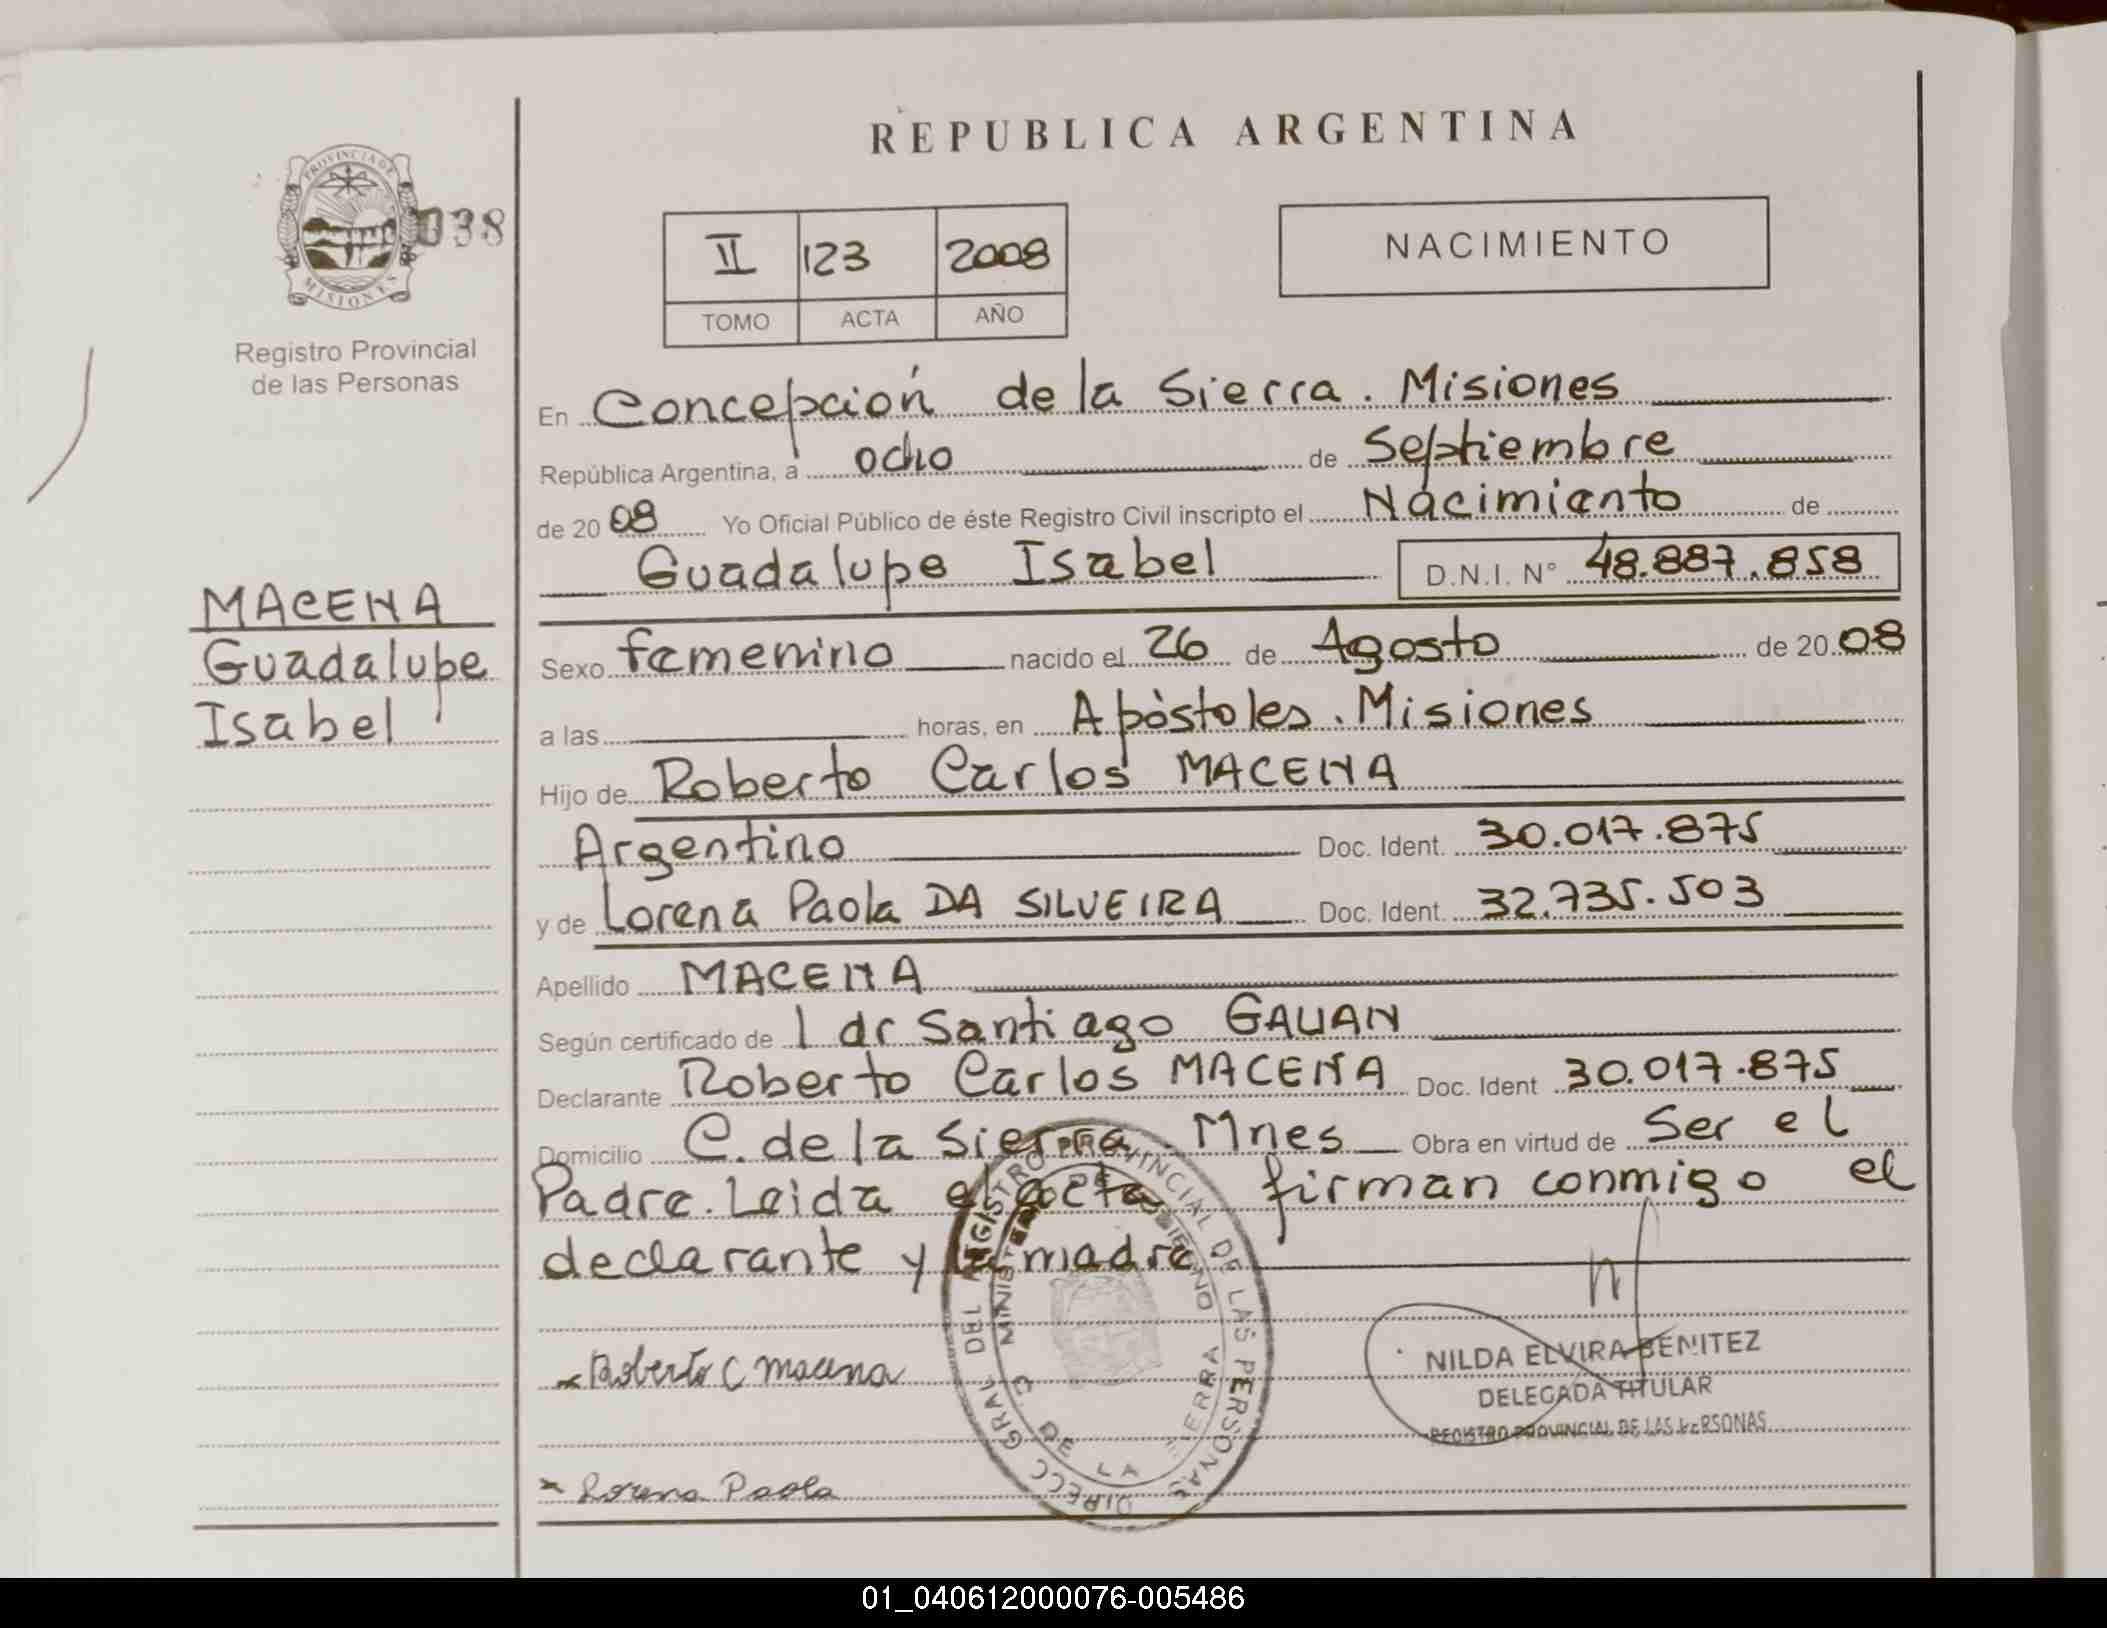 REPUBLICA ARGENTINA
PROVINCIA DE
MISIONES
038
Registro Provincial
de las Personas
II 123 2008
TOMO ACTA AÑO
NACIMIENTO
En Concepción de la Sierra. Misiones
República Argentina, a ocho de Septiembre
de 2008 Yo Oficial Público de éste Registro Civil inscripto el Nacimiento de
Guadalupe Isabel D.N.I. N° 48.887.858
MACENA
Guadalupe
Isabel
Sexo femenino nacido el 26 de Agosto de 2008
a las horas, en Apóstoles. Misiones
Hijo de Roberto Carlos MACENA
Argentino Doc. Ident. 30.017.875
y de Lorena Paola DA SILVEIRA Doc. Ident. 32.735.503
Apellido MACENA
Según certificado de l dr Santiago GALIAN
Declarante Roberto Carlos MACENA Doc. Ident 30.017.875
Domicilio C. de la Sierra. Mnes Obra en virtud de Ser el
Padre. Leida el acta firman conmigo el
declarante y la madre
Roberto C Macena
Lorena Paola
DIRECC GRAL DEL REGISTRO PROVINCIAL DE LAS PERSONAS
MINISTERIO DE GOBIERNO
C. DE LA SIERRA
NILDA ELVIRA BENITEZ
DELEGADA TITULAR
REGISTRO PROVINCIAL DE LAS PERSONAS
01_040612000076-005486